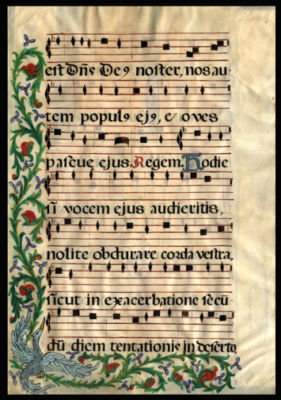 est Dñs De9 noster, nos au
tem popul9 ej9, & oves
pascuę ejus. Regem. Hodie
si vocem ejus audieritis,
nolite obdurare corda vestra,
sicut in exacerbatione secũ
dũ diem tentationis in deserto